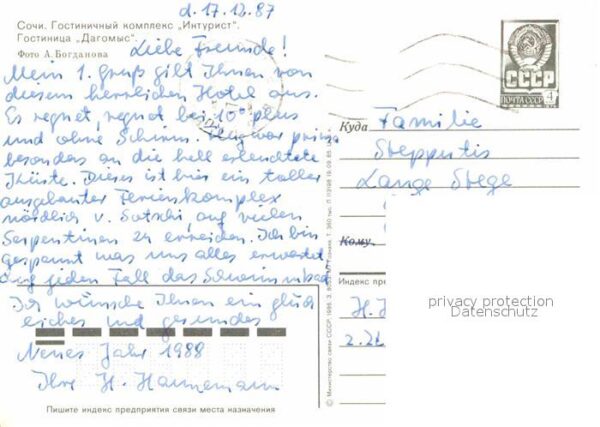 d. 17.12.87
Сочи. Гостиничный комплекс „Интурист".
Гостиница „Дагомыс".
Фото А. Богданова
Liebe Freunde!
Mein 1. Gruß gilt Ihnen von
diesem herrlichen Hotel aus.
Es regnet, regnet bei 10° plus
und ohne Schirm. Flug war prima
besonders an die hell erleuchtete
Küste. Dieses ist hier ein toller
ausgebauter Ferienkomplex
nördlich v. Sotschi, auf vielen
Serpentinen zu erreichen. Ich bin
gespannt was uns alles erwartet
auf jeden Fall das Schwimmbad
Ich wünsche Ihnen ein glück
liches und gesundes
Neues Jahr 1988
Ihre H. Hannemann
Пишите индекс предприятия связи места назначения
СССР
ПОЧТА СССР 4
Куда Familie
Stepputis
Lange Stege
Кому
Индекс пре
H.
privacy protection
Datenschutz
© Министерство связи СССР, 1986.